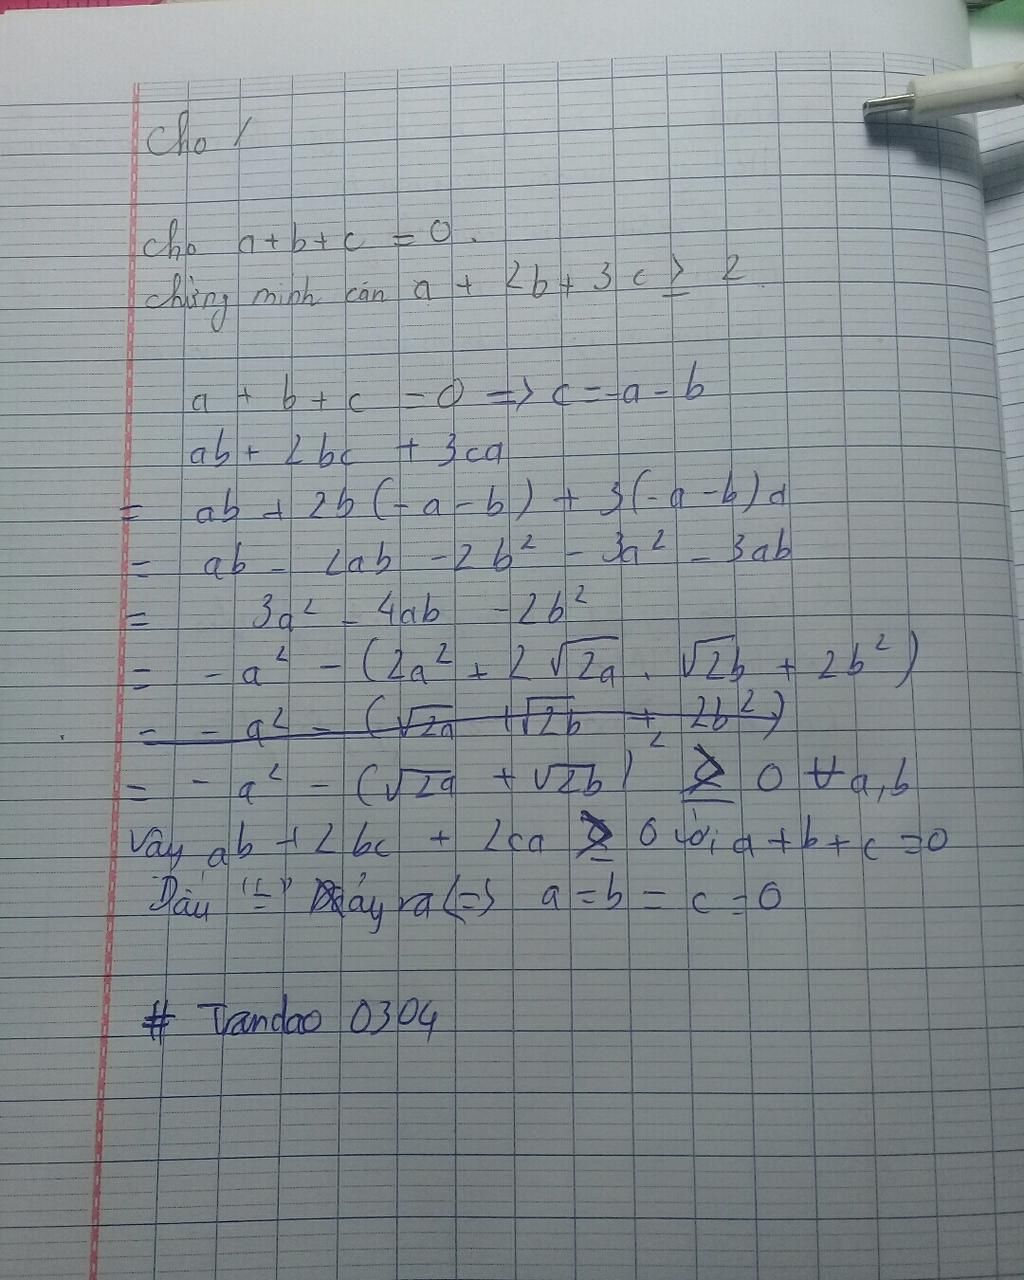 Cho
Cho a+b+c = 0.
chứng minh cán a + 2b + 3c ≥ 2
a + b + c = 0 => c = -a - b
ab + 2bc + 3ca
= ab + 2b(-a-b) + 3(-a-b)a
= ab - 2ab - 2b² - 3a² - 3ab
= 3a² - 4ab - 2b²
= - a² - (2a² + 2√2a . √2b + 2b²)
= - a² - (√2a + √2b + 2b²)
= - a² - (√2a + √2b)² ≥ 0 ∀a,b
Vậy ab + 2bc + 2ca ≥ 0 với a+b+c=0
Dấu "=" xảy ra <=> a=b=c=0
# Trandao 0304